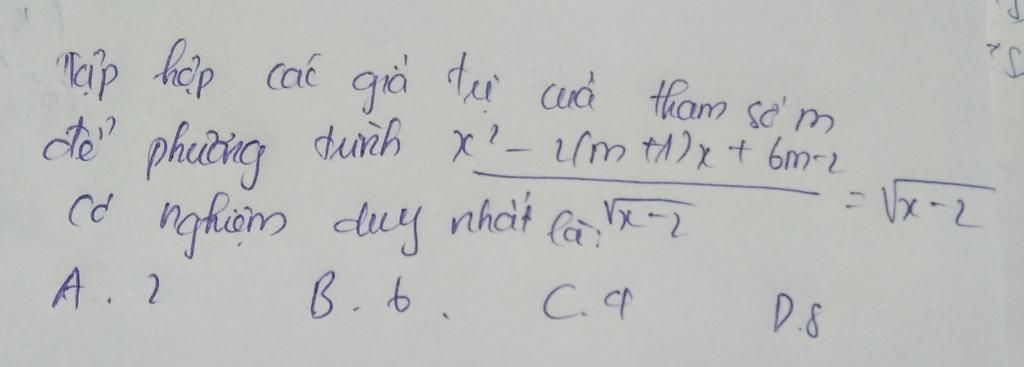 Tập hợp các giá trị của tham số m
để phương trình x² - 2(m+1)x + 6m-2 / √x-2 = √x-2
có nghiệm duy nhất là:
A. 2 B. 6. C. 9 D. 8